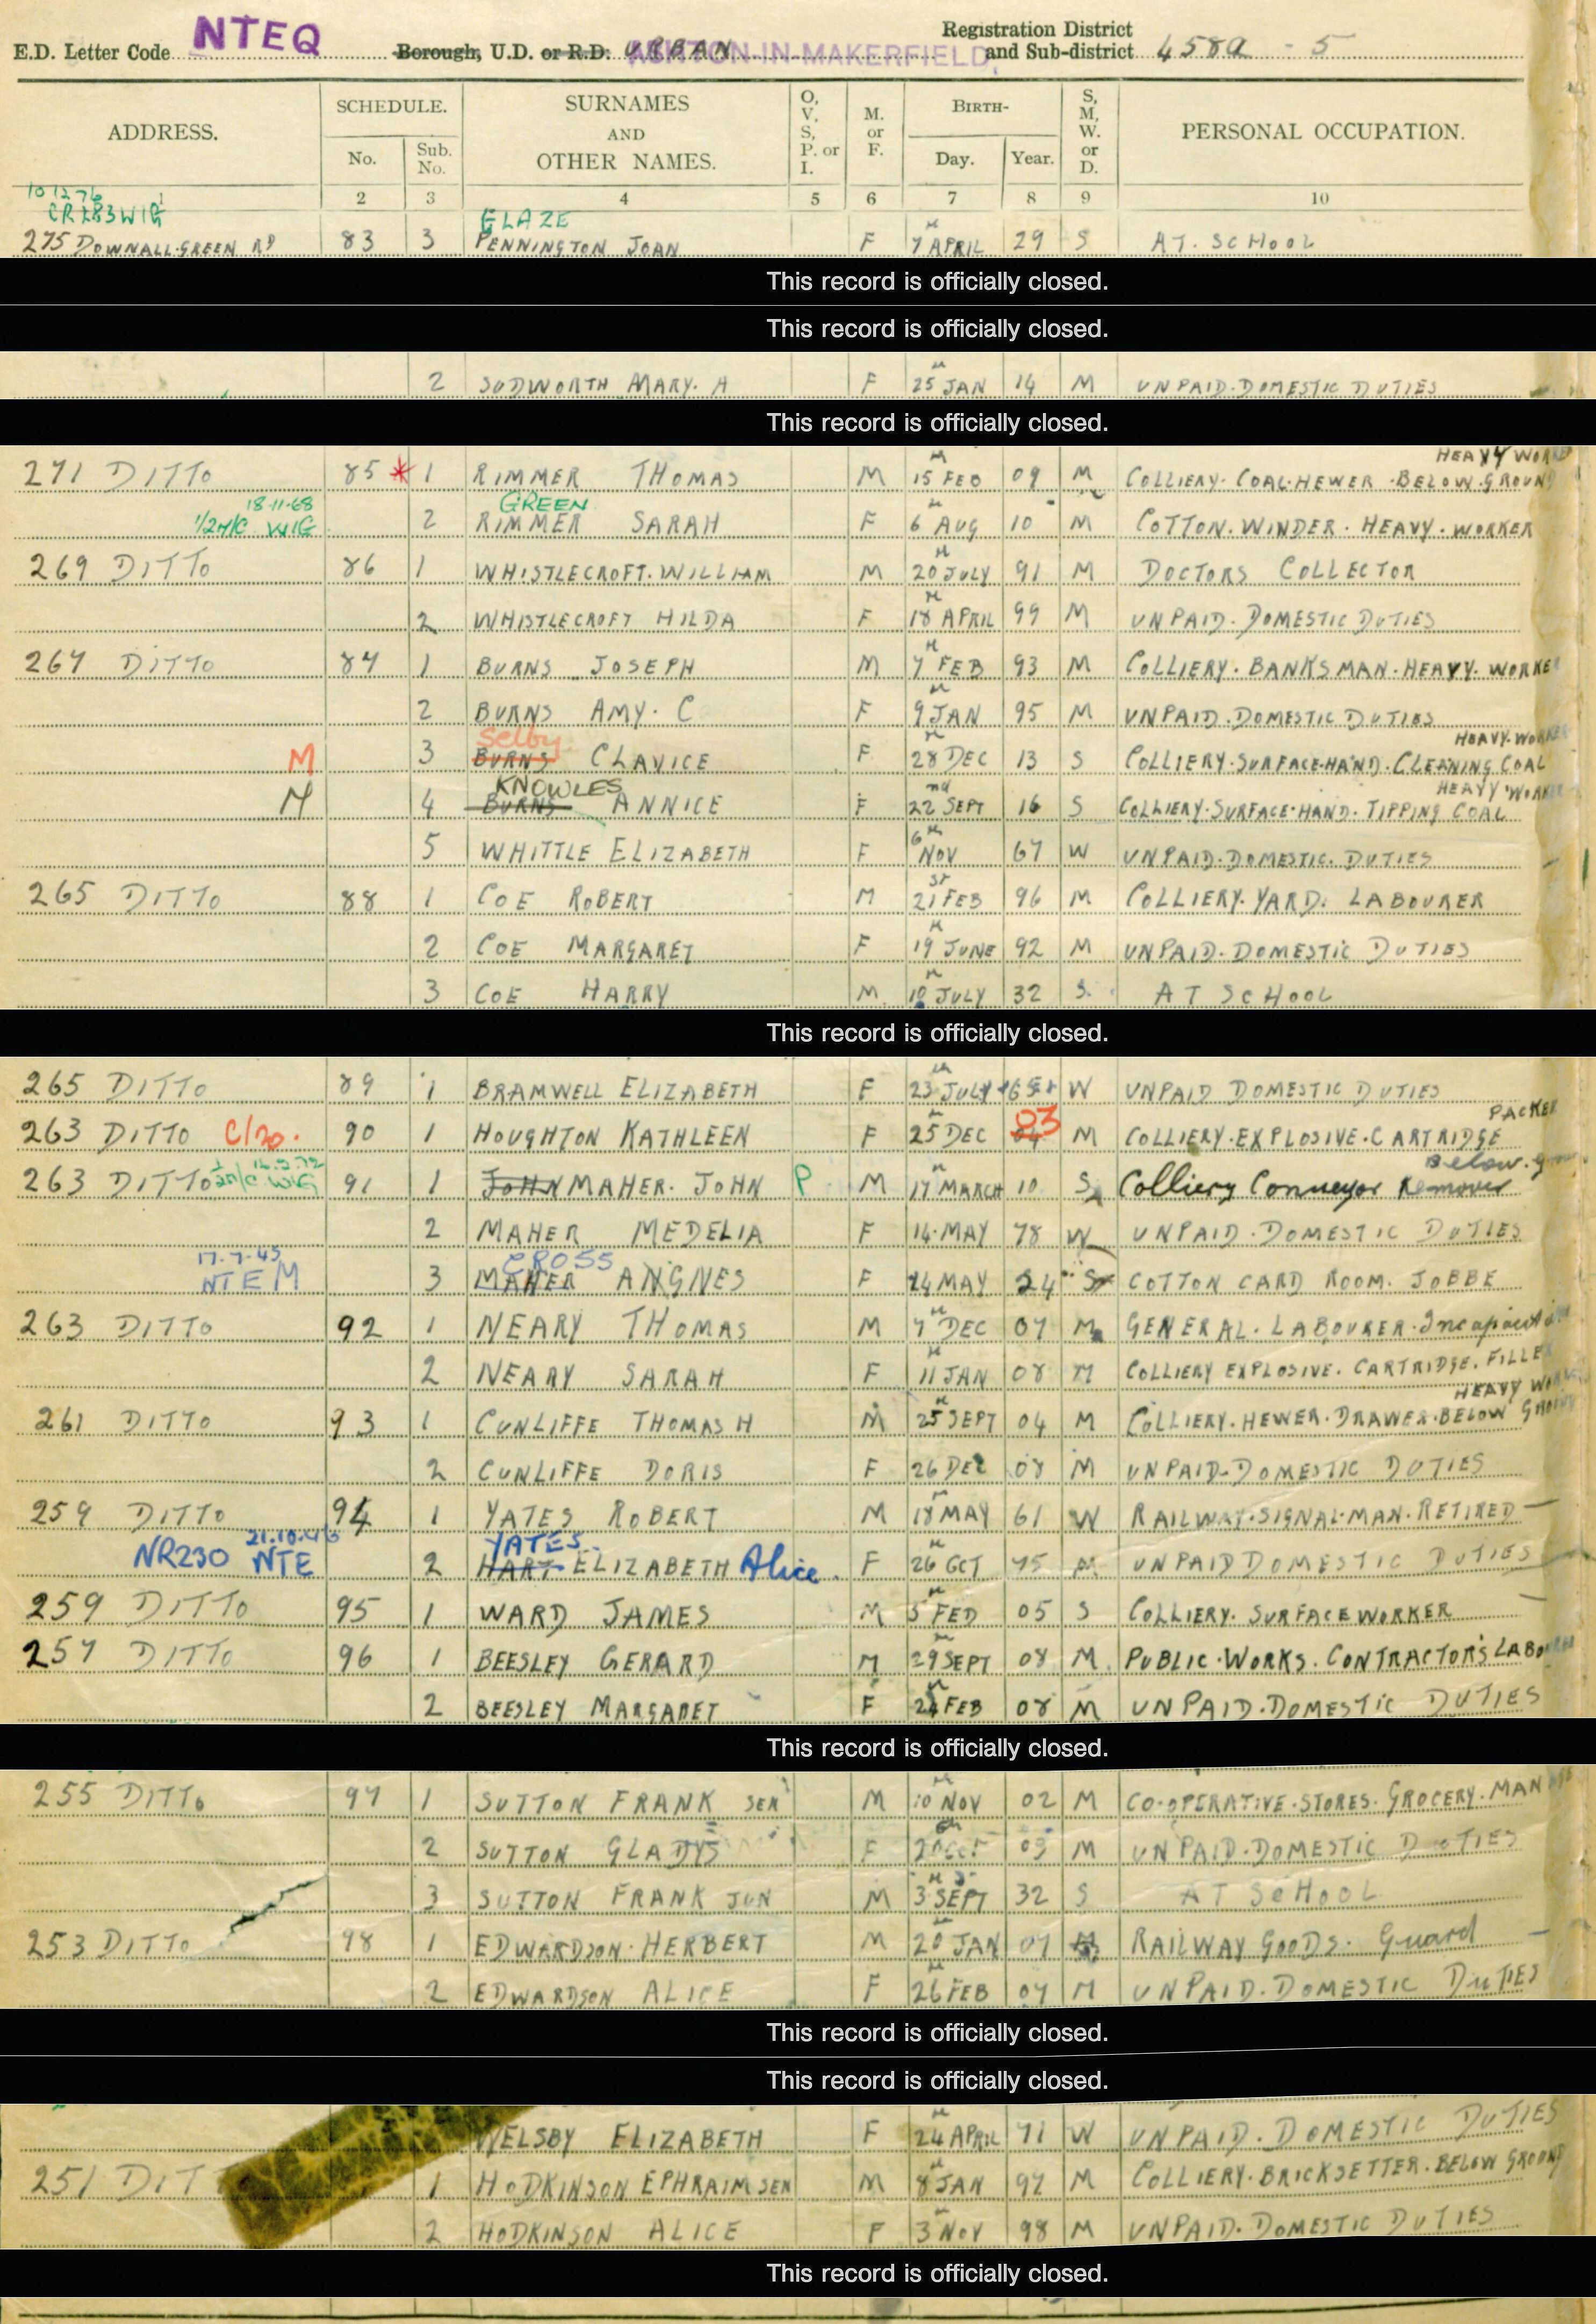 E.D. Letter Code NTEQ Borough, U.D. or R.D. URBAN ASHTON-IN-MAKERFIELD. Registration District and Sub-district 458a - 5
ADDRESS. SCHEDULE. No. Sub. No. SURNAMES AND OTHER NAMES. O, V, S, P. or I. M. or F. BIRTH- Day. Year. S, M, W. or D. PERSONAL OCCUPATION.
2 3 4 5 6 7 8 9 10
10 12 76
CR283 WIG GLAZE
275 DOWNALL.GREEN RD 83 3 PENNINGTON JOAN F 7th APRIL 29 S AT. SCHOOL
This record is officially closed.
This record is officially closed.
2 SUDWORTH MARY. A F 25th JAN 14 M UNPAID.DOMESTIC DUTIES
This record is officially closed.
HEAVY WORK
271 DITTO 85 * 1 RIMMER THOMAS M 15th FEB 09 M COLLIERY. COAL.HEWER .BELOW.GROUND
18-11-68 GREEN
1/2M/C WIG 2 RIMMER SARAH F 6th AUG 10 M COTTON.WINDER. HEAVY. WORKER
269 DITTO 86 1 WHISTLECROFT.WILLIAM M 20th JULY 91 M DOCTORS COLLECTOR
2 WHISTLECROFT HILDA F 18th APRIL 99 M UNPAID. DOMESTIC DUTIES
267 DITTO 87 1 BURNS JOSEPH M 7th FEB 93 M COLLIERY. BANKSMAN.HEAVY. WORKE
2 BURNS AMY. C F 9th JAN 95 M UNPAID.DOMESTIC DUTIES
Selby HEAVY.WORKER
M 3 BURNS CLAVICE F 28th DEC 13 S COLLIERY.SURFACE.HAND.CLEANING COAL
KNOWLES HEAVY WORK
M 4 BURNS ANNICE F 22nd SEPT 16 S COLLIERY.SURFACE.HAND. TIPPING COAL
5 WHITTLE ELIZABETH F 6th NOV 67 W UNPAID.DOMESTIC. DUTIES
265 DITTO 88 1 COE ROBERT M 21st FEB 96 M COLLIERY.YARD. LABOURER
2 COE MARGARET F 19th JUNE 92 M UNPAID.DOMESTIC DUTIES
3 COE HARRY M 10th JULY 32 S. AT SCHOOL
This record is officially closed.
265 DITTO 89 1 BRAMWELL ELIZABETH F 23 JULY W UNPAID DOMESTIC DUTIES
03 PACKER
263 DITTO C/20. 90 1 HOUGHTON KATHLEEN F 25th DEC 04 M COLLIERY.EXPLOSIVE.CARTRIDGE
Below
263 DITTO WIG 91 1 JOHN MAHER. JOHN P M 17th MARCH 10 S Colliery Conveyor Remover
2 MAHER MEDELIA F 14.MAY 78 W UNPAID.DOMESTIC DUTIES
17.7.45 CROSS
NTEM 3 MAHER ANGNES F 24 MAY 24 S COTTON CARD ROOM. JOBBE
263 DITTO 92 1 NEARY THOMAS M 7th DEC 07 M GENERAL. LABOURER.
2 NEARY SARAH F 11th JAN 08 M COLLIERY EXPLOSIVE. CARTRIDGE. FILLER
HEAVY WORK
261 DITTO 93 1 CUNLIFFE THOMAS H M 25th SEPT 04 M COLLIERY.HEWER.DRAWER.BELOW GROUND
2 CUNLIFFE DORIS F 26 DEC 08 M UNPAID.DOMESTIC DUTIES
259 DITTO 94 1 YATES ROBERT M 18th MAY 61 W RAILWAY.SIGNAL.MAN.RETIRED
21.10.46 YATES
NR230 NTE 2 HART ELIZABETH Alice. F 26th OCT 75 UNPAID DOMESTIC DUTIES
259 DITTO 95 1 WARD JAMES M 5th FEB 05 S COLLIERY. SURFACE WORKER
257 DITTO 96 1 BEESLEY GERARD M 29th SEPT 08 M. PUBLIC.WORKS. CONTRACTORS LABO
2 BEESLEY MARGARET F 24th FEB 08 M UNPAID.DOMESTIC DUTIES
This record is officially closed.
255 DITTO 97 1 SUTTON FRANK SEN M 10th NOV 02 M CO.OPERATIVE.STORES.GROCERY.MAN
2 SUTTON GLADYS F OCT 03 M UNPAID.DOMESTIC DUTIES
3 SUTTON FRANK JUN M 3 SEPT 32 S AT SCHOOL
253 DITTO 98 1 EDWARDSON.HERBERT M 20th JAN 07 M RAILWAY GOODS. Guard
2 EDWARDSON ALICE F 26th FEB 07 M UNPAID.DOMESTIC DUTIES
This record is officially closed.
This record is officially closed.
WELSBY ELIZABETH F 24th APRIL 71 W UNPAID. DOMESTIC DUTIES
251 DIT 1 HODKINSON EPHRAIM SEN M 8th JAN 97 M COLLIERY.BRICKSETTER.BELOW GROUND
2 HODKINSON ALICE F 3rd NOV 98 M UNPAID.DOMESTIC DUTIES
This record is officially closed.